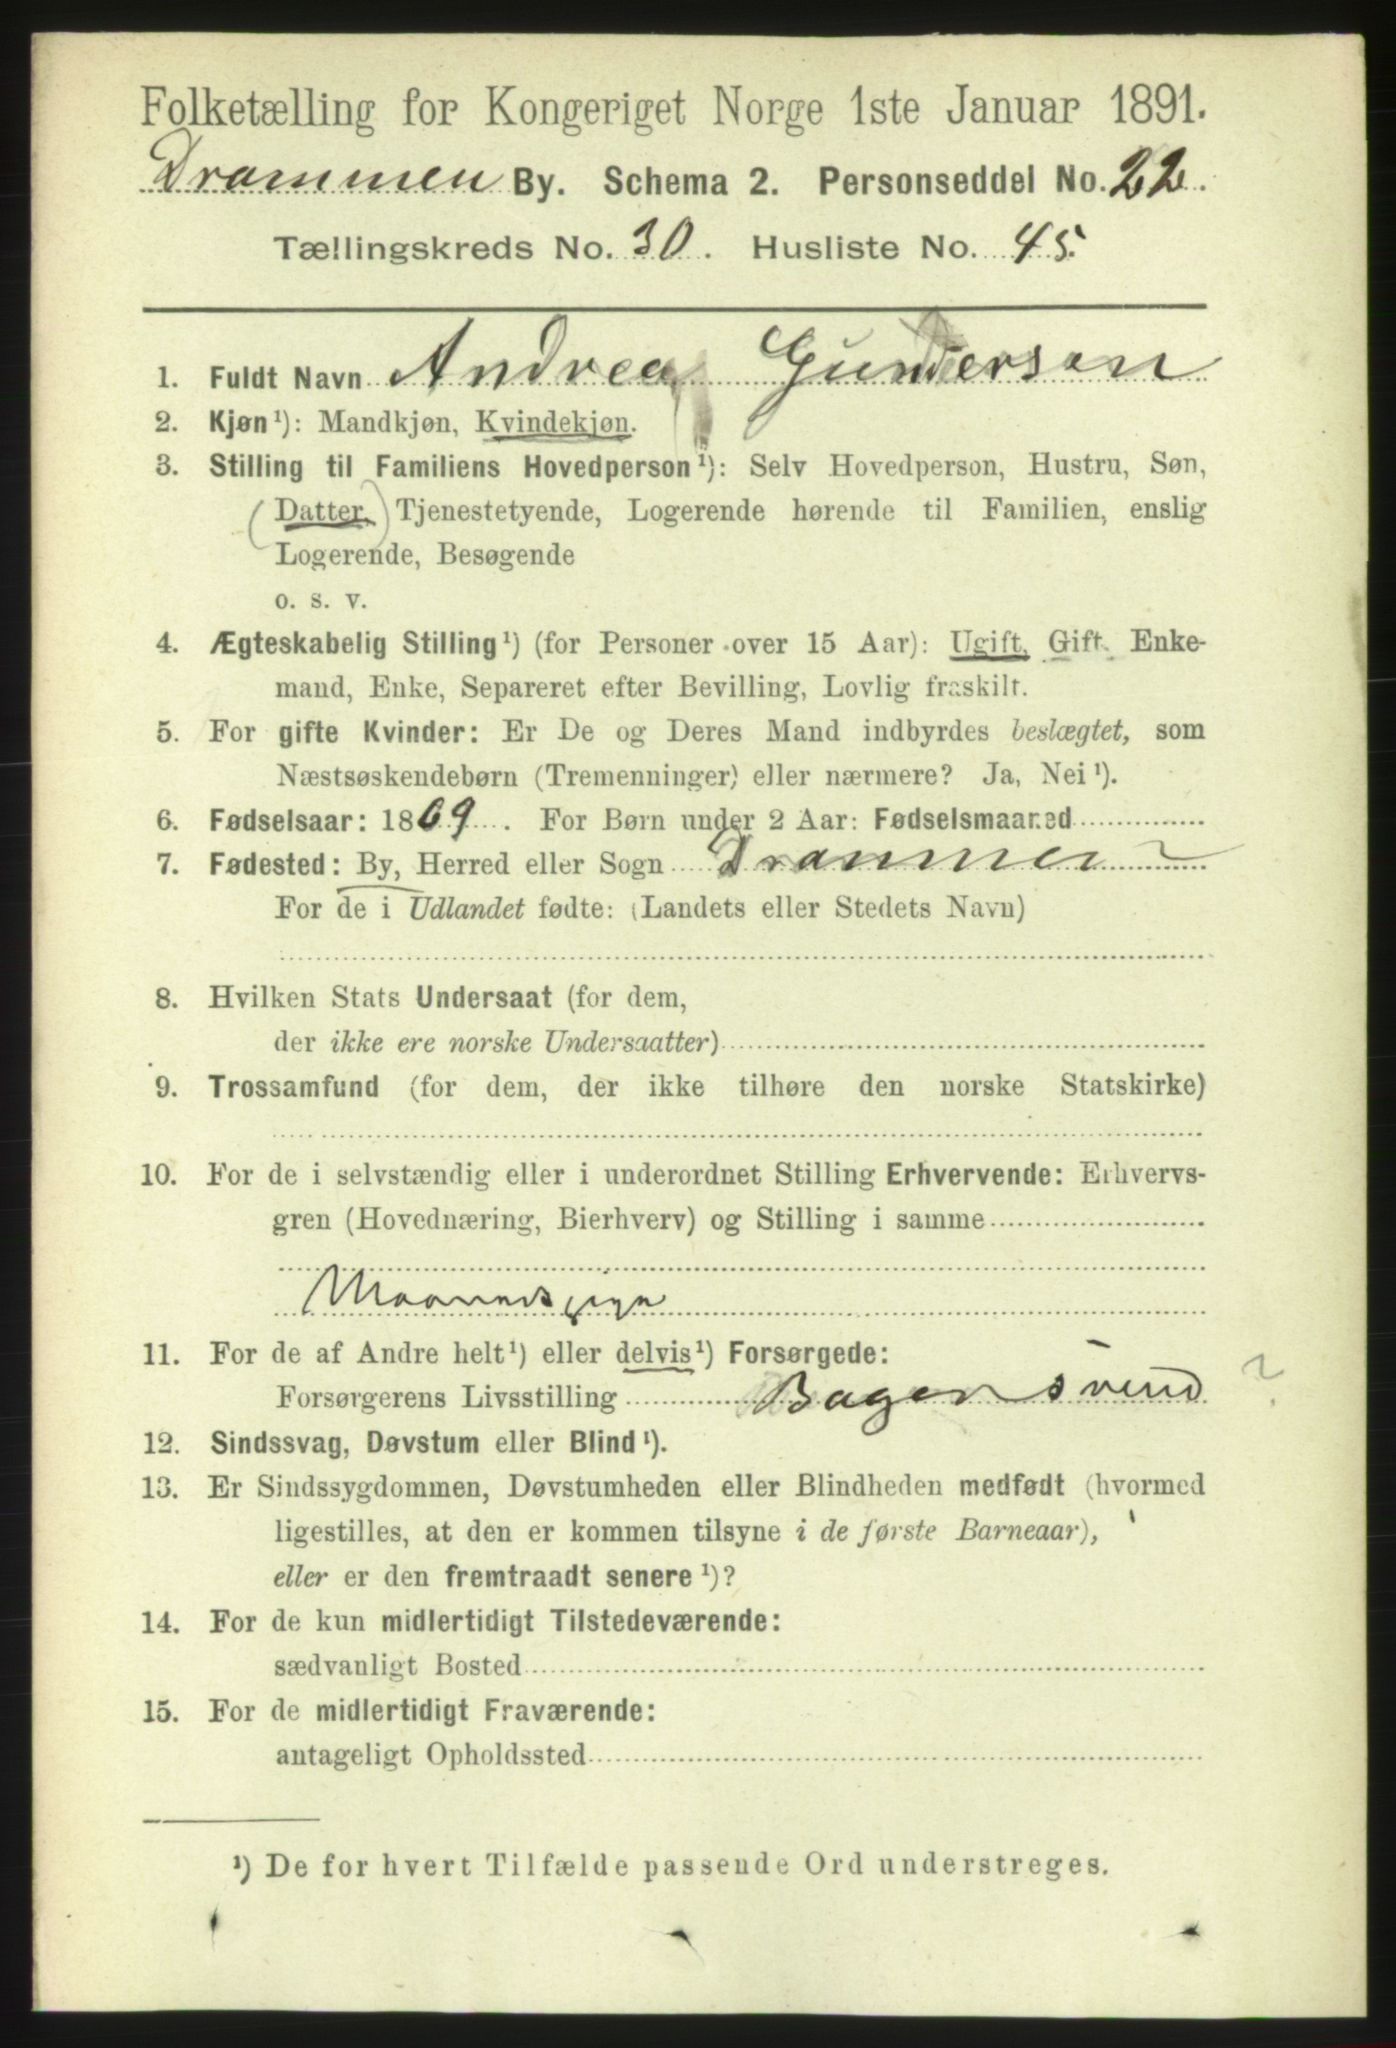 Folketælling for Kongeriget Norge 1ste Januar 1891.
Drammen By. Schema 2. Personseddel No. 22.
Tællingskreds No. 30. Husliste No. 45.
1. Fuldt Navn Andrea Gundersen
2. Kjøn¹): Mandkjøn, Kvindekjøn.
3. Stilling til Familiens Hovedperson¹): Selv Hovedperson, Hustru, Søn,
(Datter,) Tjenestetyende, Logerende hørende til Familien, enslig
Logerende, Besøgende
o. s. v.
4. Ægteskabelig Stilling¹) (for Personer over 15 Aar): Ugift, Gift, Enke-
mand, Enke, Separeret efter Bevilling, Lovlig fraskilt.
5. For gifte Kvinder: Er De og Deres Mand indbyrdes beslægtet, som
Næstsøskendebørn (Tremenninger) eller nærmere? Ja, Nei¹).
6. Fødselsaar: 1869. For Børn under 2 Aar: Fødselsmaaned
7. Fødested: By, Herred eller Sogn Drammen
For de i Udlandet fødte: (Landets eller Stedets Navn)
8. Hvilken Stats Undersaat (for dem,
der ikke ere norske Undersaatter)
9. Trossamfund (for dem, der ikke tilhøre den norske Statskirke)
10. For de i selvstændig eller i underordnet Stilling Erhvervende: Erhvervs-
gren (Hovednæring, Bierhverv) og Stilling i samme
Maanedspige
11. For de af Andre helt¹) eller delvis¹) Forsørgede:
Forsørgerens Livsstilling Bagersvend ?
12. Sindssvag, Døvstum eller Blind¹).
13. Er Sindssygdommen, Døvstumheden eller Blindheden medfødt (hvormed
ligestilles, at den er kommen tilsyne i de første Barneaar),
eller er den fremtraadt senere¹)?
14. For de kun midlertidigt Tilstedeværende:
sædvanligt Bosted
15. For de midlertidigt Fraværende:
antageligt Opholdssted
¹) De for hvert Tilfælde passende Ord understreges.